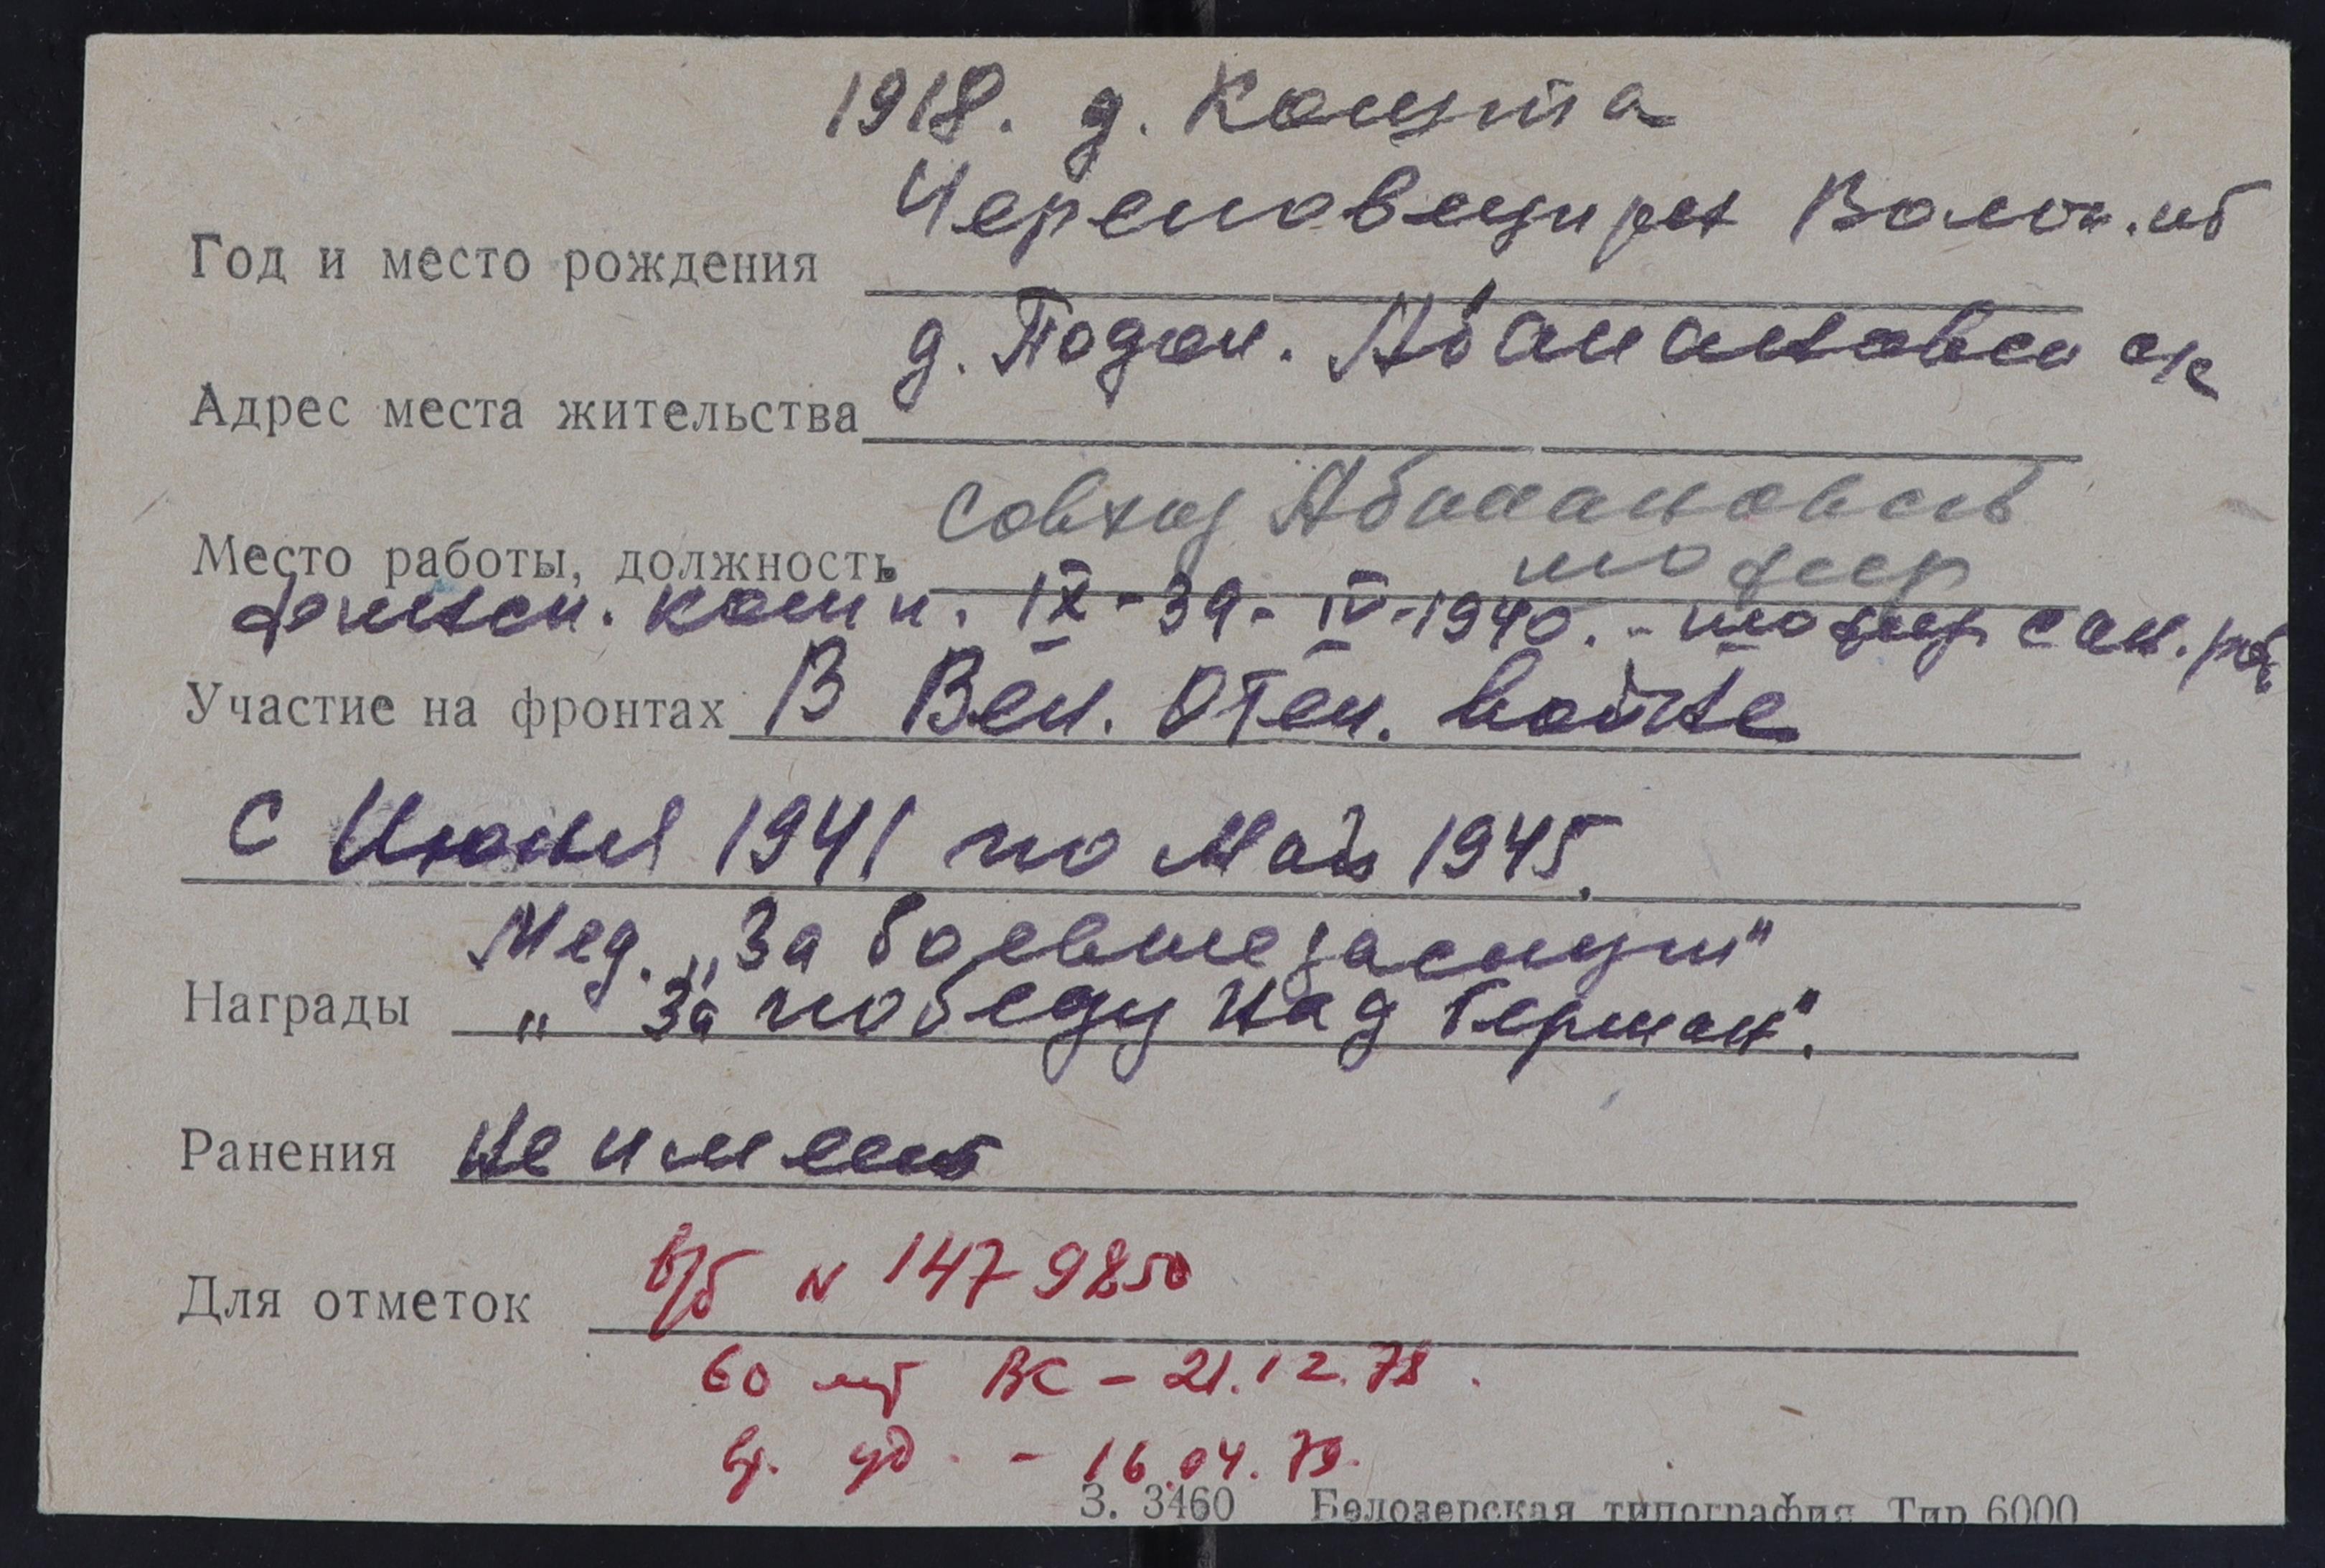 1918. д. Коңута
Череповецк р-н Волог. об
Год и место рождения
д. Подол. Абакановск ок
Адрес места жительства
совхоз Абакановск
Место работы, должность
шофер
финск. комп. IX-39-IV-1940. - шофер сан. рот
Участие на фронтах В Вел. Отеч. войне
с Июня 1941 по Май 1945.
Мед. „За боевые заслуги"
Награды „ За победу над Герман".
Ранения Не имеет
Для отметок в/б N 1479850
60 лет ВС - 21.12.78.
уд. - 16.04.79.
З. 3460 Белозерская типография Тир 6000